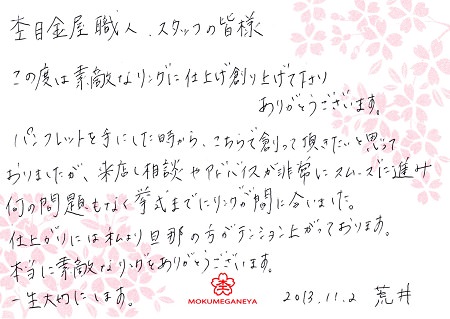 杢目金屋職人、スタッフの皆様
この度は素敵なリングに仕上げ創り上げて下さり
ありがとうございます。
パンフレットを手にした時から、こちらで創って頂きたいと思って
おりましたが、来店し相談やアドバイスが非常にスムーズに進み
何の問題もなく挙式までにリングが間に合いました。
仕上がりには私より旦那の方がテンション上がっております。
本当に素敵なリングをありがとうございます。
一生大切にします。
MOKUMEGANEYA
2013.11.2 荒井